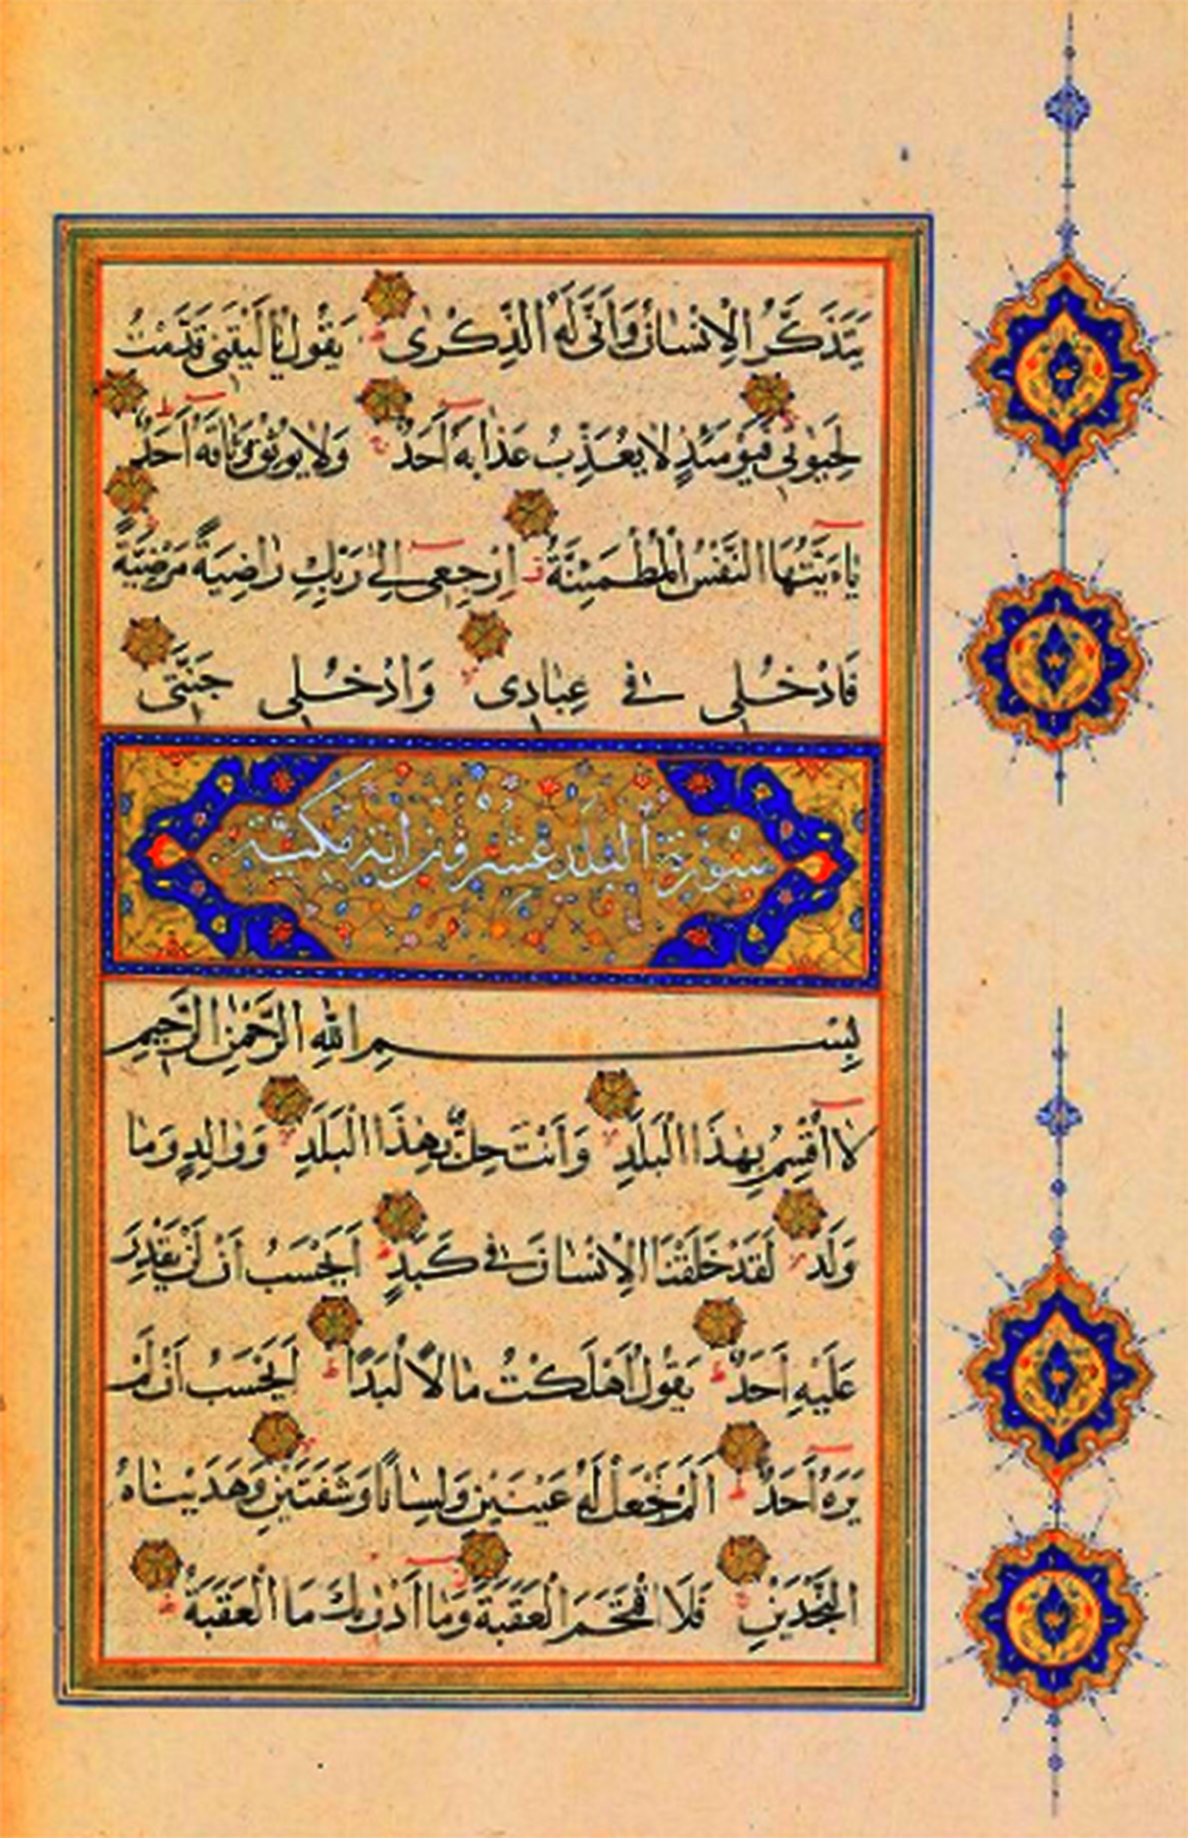 يَتَذَكَّرُ الْاِنْسَانُ وَاَنّٰى لَهُ الذِّكْرٰى يَقُولُ يَا لَيْتَنِى قَدَّمْتُ
لِحَيٰوتِى فَيَوْمَئِذٍ لَا يُعَذِّبُ عَذَابَهُ اَحَدٌ وَلَا يُوثِقُ وَثَاقَهُ اَحَدٌ
يَاءَيَّتُهَا النَّفْسُ الْمُطْمَئِنَّةُ اِرْجِعِى اِلٰى رَبِّكِ رَاضِيَةً مَرْضِيَّةً
فَادْخُلِى فِى عِبَادِى وَادْخُلِى جَنَّتِى
سُورَةُ الْبَلَدِ عِشْرُونَ اٰيَة مَكِّيَّة
بِسْمِ اللّٰهِ الرَّحْمٰنِ الرَّحِيمِ
لَا اُقْسِمُ بِهٰذَا الْبَلَدِ وَاَنْتَ حِلٌّ بِهٰذَا الْبَلَدِ وَوَالِدٍ وَمَا
وَلَدَ لَقَدْ خَلَقْنَا الْاِنْسَانَ فِى كَبَدٍ اَيَحْسَبُ اَنْ لَنْ يَقْدِرَ
عَلَيْهِ اَحَدٌ يَقُولُ اَهْلَكْتُ مَالًا لُبَدًا اَيَحْسَبُ اَنْ لَمْ
يَرَهُ اَحَدٌ اَلَمْ نَجْعَلْ لَهُ عَيْنَيْنِ وَلِسَانًا وَشَفَتَيْنِ وَهَدَيْنَاهُ
النَّجْدَيْنِ فَلَا اقْتَحَمَ الْعَقَبَةَ وَمَا اَدْرٰيكَ مَا الْعَقَبَةُ